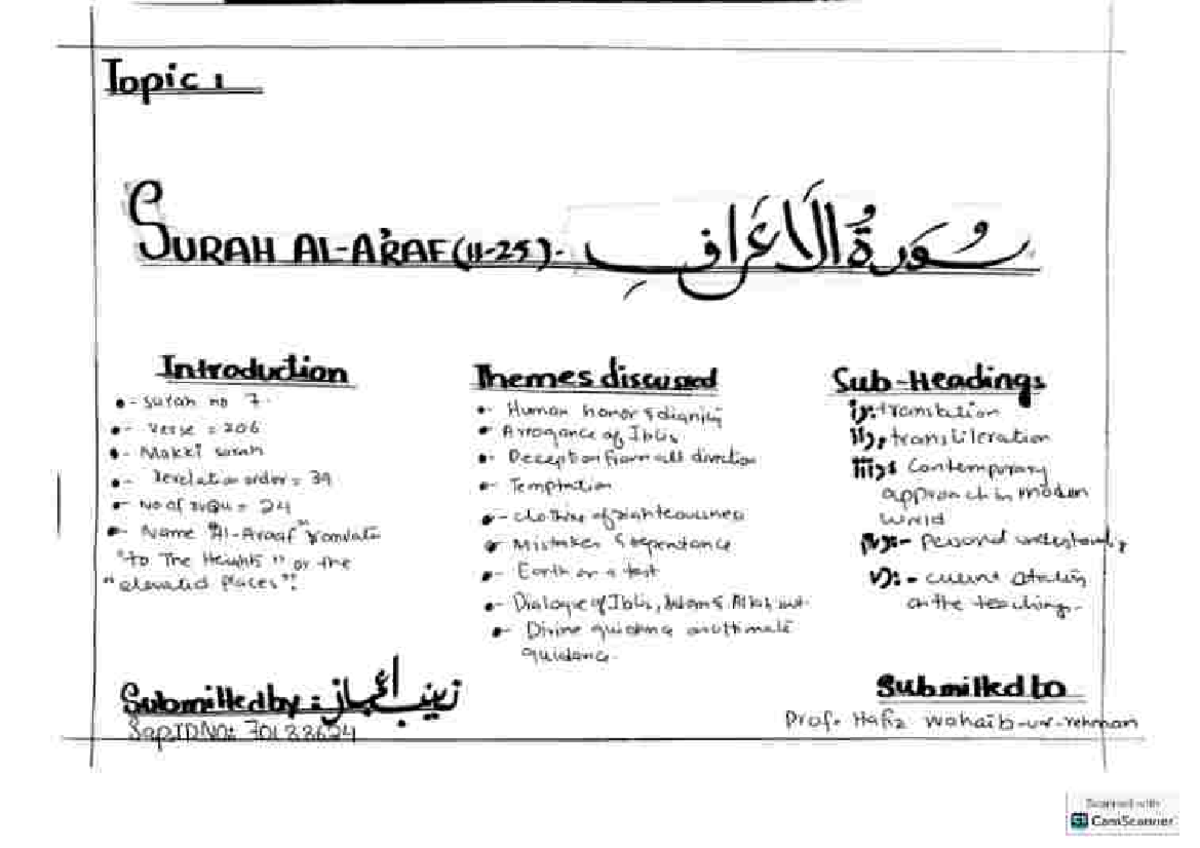 Topic 1
SURAH AL-A'RAF (11-25).
سُورَةُ الْاَعْرَافِ
Introduction
- Surah no 7.
- Verse = 206
- Makki surah
- Revelation order = 39
- No of ruqu = 24
- Name "Al-Araaf" translate
"to The Heights" or the
"elevated places".
Themes discussed
- Human honor & dignity
- Arrogance of Iblis
- Deception from all direction
- Temptation
- clothing of righteousness
- Mistakes & rependance
- Earth as a test
- Dialogue of Iblis, Adam &
- Divine guidance as ultimate
guidance.
Sub-Headings
i): translation
ii): transliteration
iii): Contemporary
approach in modern
world
iv):- personal understanding
v):- current
on the teachings.
Submitted by: زینب اعجاز
Sap ID No:
Submitted to
Prof. Hafiz Wohaib-ur-rehman
Scanned with
CS CamScanner